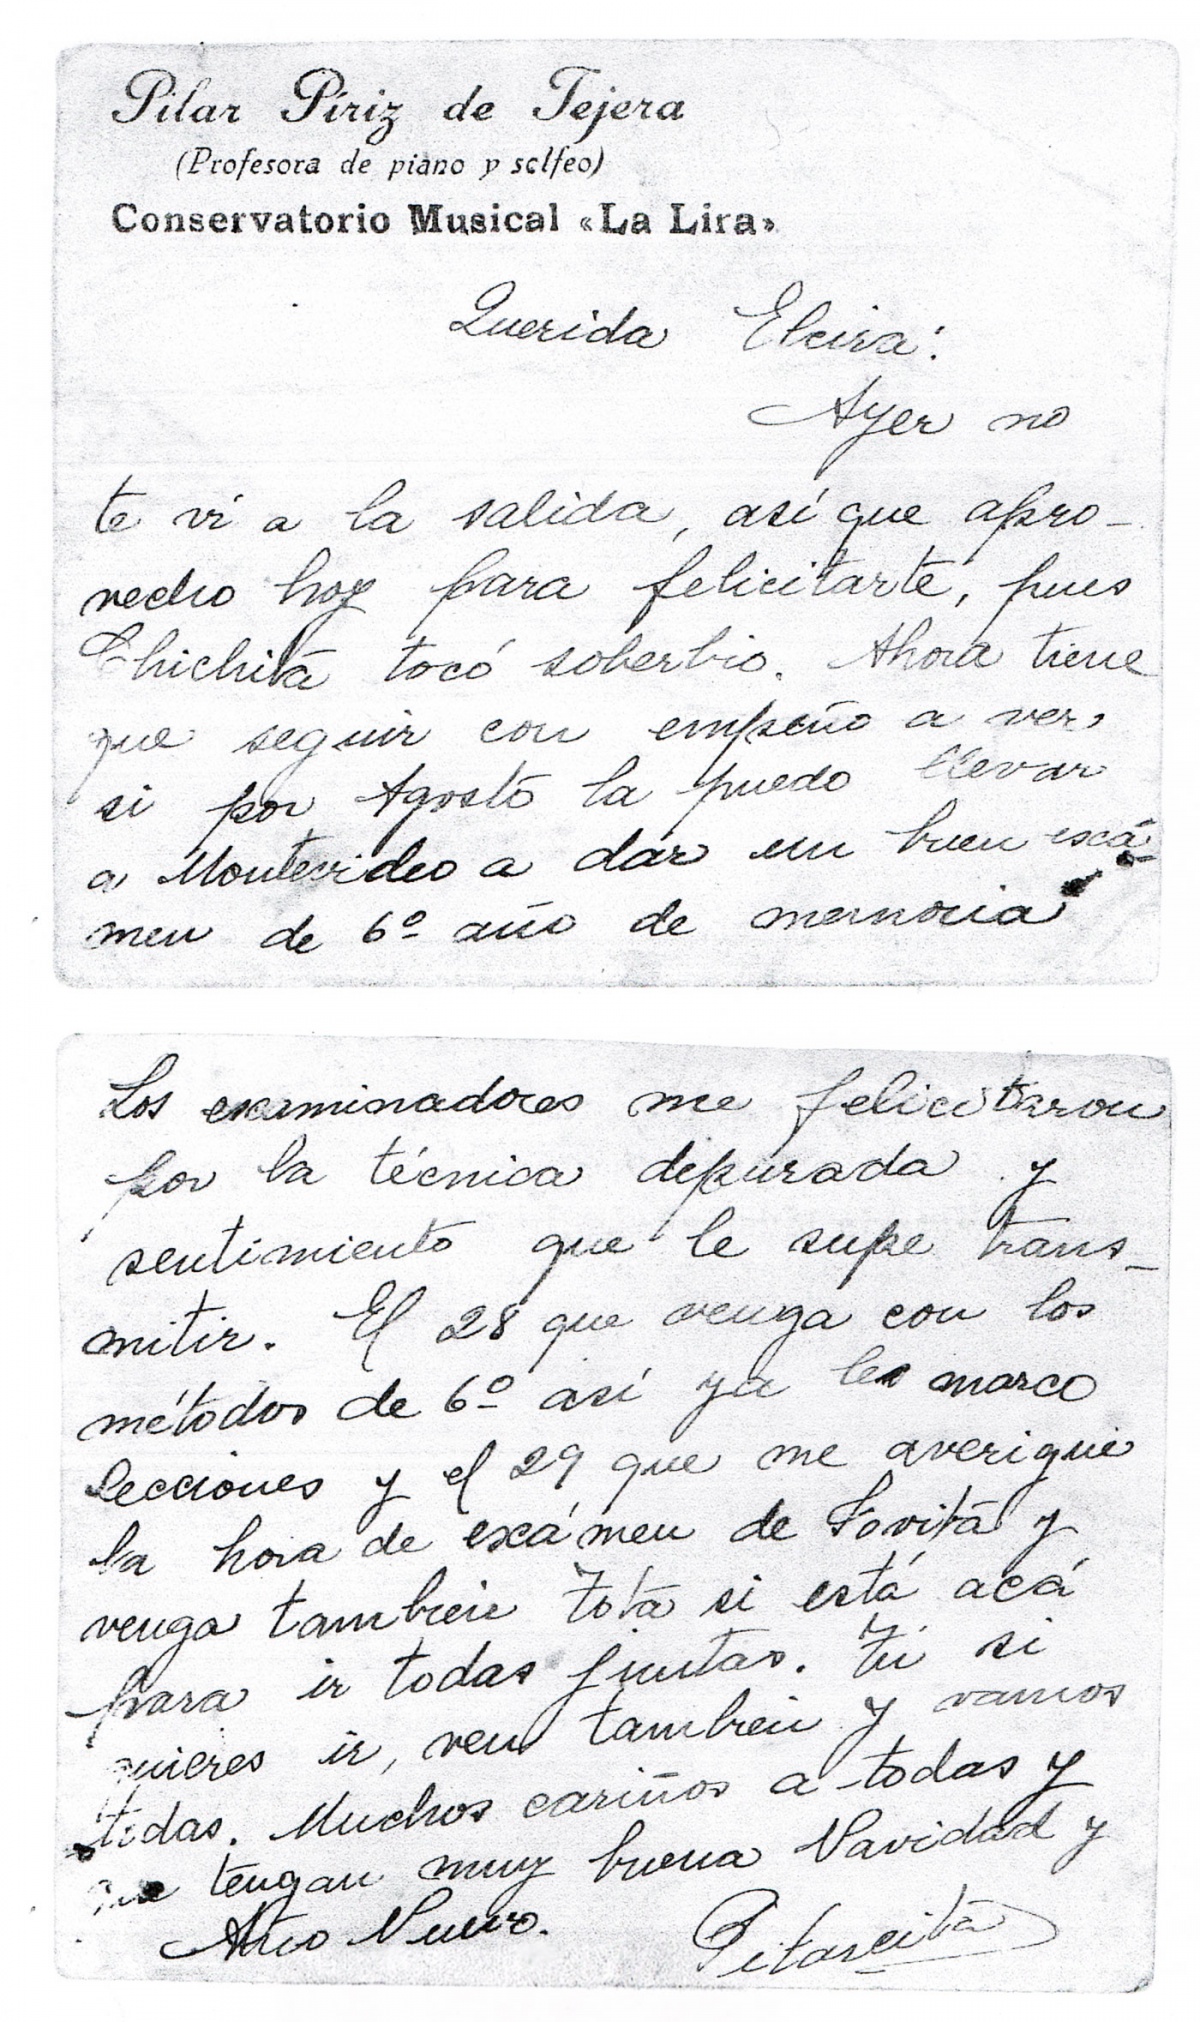 Pilar Píriz de Tejera
(Profesora de piano y solfeo)
Conservatorio Musical «La Lira»
Querida Elcira:
Ayer no
te vi a la salida, así que apro-
vecho hoy para felicitarte, pues
Chichita tocó soberbio. Ahora tiene
que seguir con empeño a ver
si por Agosto la puedo llevar
a Montevideo a dar un buen exá-
men de 6º año de memoria
Los examinadores me felicitaron
por la técnica depurada y
sentimiento que le supe trans-
mitir. El 28 que venga con los
métodos de 6º así ya le marco
lecciones y el 29 que me averigüe
la hora de exámen de Jovita y
venga tambien Tota si está acá
para ir todas juntas. Tú si
quieres ir, ven tambien y vamos
todas. Muchos cariños a todas y
que tengan muy buena Navidad y
Año Nuevo.